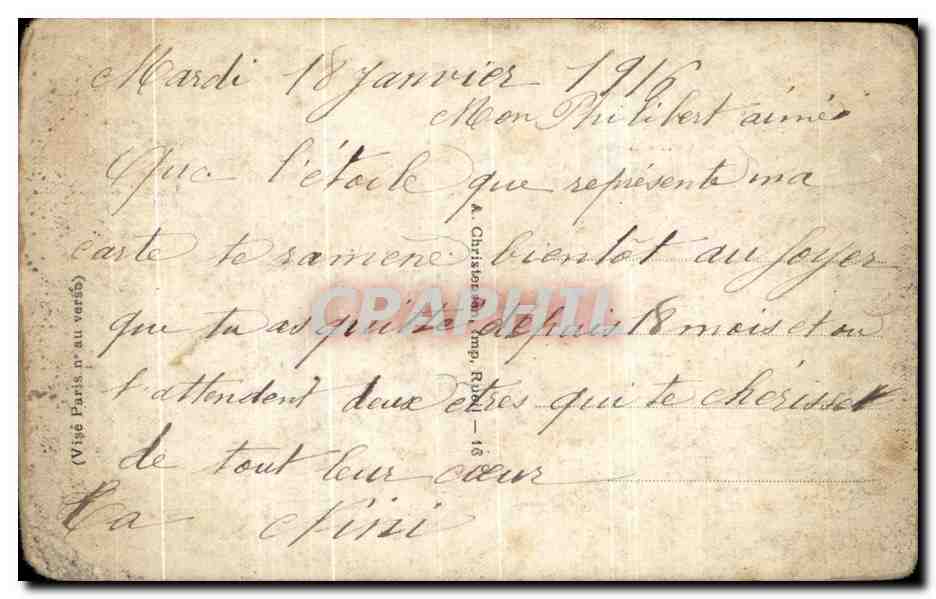 Mardi 18 Janvier 1916
Mon Philibert aimé
Que l'étoile que représente ma
carte te ramène bientôt au foyer
que tu as quitté depuis 18 mois et où
t'attendent deux êtres qui te chérissent
de tout leur cœur
Ta Nini
(Visé Paris n° au verso)
A. Christensen, Imp. Rueil — 16
CPAPHIL